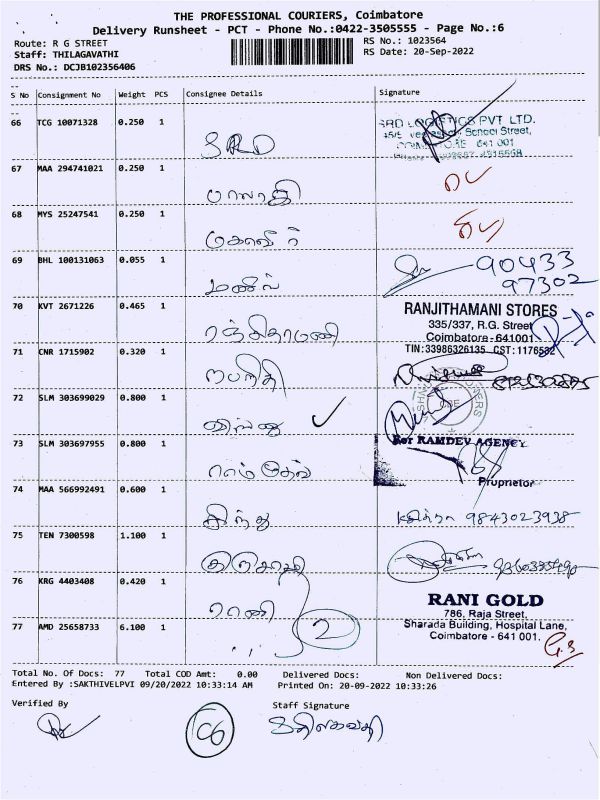 THE PROFESSIONAL COURIERS, Coimbatore
Delivery Runsheet - PCT - Phone No.:0422-3505555 - Page No.:6
Route: R G STREET
RS No.: 1023564
Staff: THILAGAVATHI
RS Date: 20-Sep-2022
DRS No.: DCJB102356406
S No Consignment No Weight PCS Consignee Details Signature
66 TCG 10071328 0.250 1
SRD
SRD LOGISTICS PVT LTD.
School Street,
641 001
67 MAA 294741021 0.250 1
பாலாஜி
68 MYS 25247541 0.250 1
மகாவீர்
69 BHL 100131063 0.055 1
90433
97302
70 KVT 2671226 0.465 1
ரஞ்சிதாமணி
RANJITHAMANI STORES
335/337, R.G. Street
Coimbatore - 641001
TIN:33986326135 CST: 1176582
71 CNR 1715902 0.320 1
72 SLM 303699029 0.800 1
விஷ்ணு
73 SLM 303697955 0.800 1
ராம்தேவ்
For RAMDEV AGENCY
Proprietor
74 MAA 566992491 0.600 1
இந்து
9843023938
75 TEN 7300598 1.100 1
76 KRG 4403408 0.420 1
ராணி
RANI GOLD
786, Raja Street,
Sharada Building, Hospital Lane,
Coimbatore - 641 001.
77 AMD 25658733 6.100 1
2
Total No. Of Docs: 77 Total COD Amt: 0.00 Delivered Docs: Non Delivered Docs:
Entered By :SAKTHIVELPVI 09/20/2022 10:33:14 AM Printed On: 20-09-2022 10:33:26
Verified By Staff Signature
C6
திலகவதி